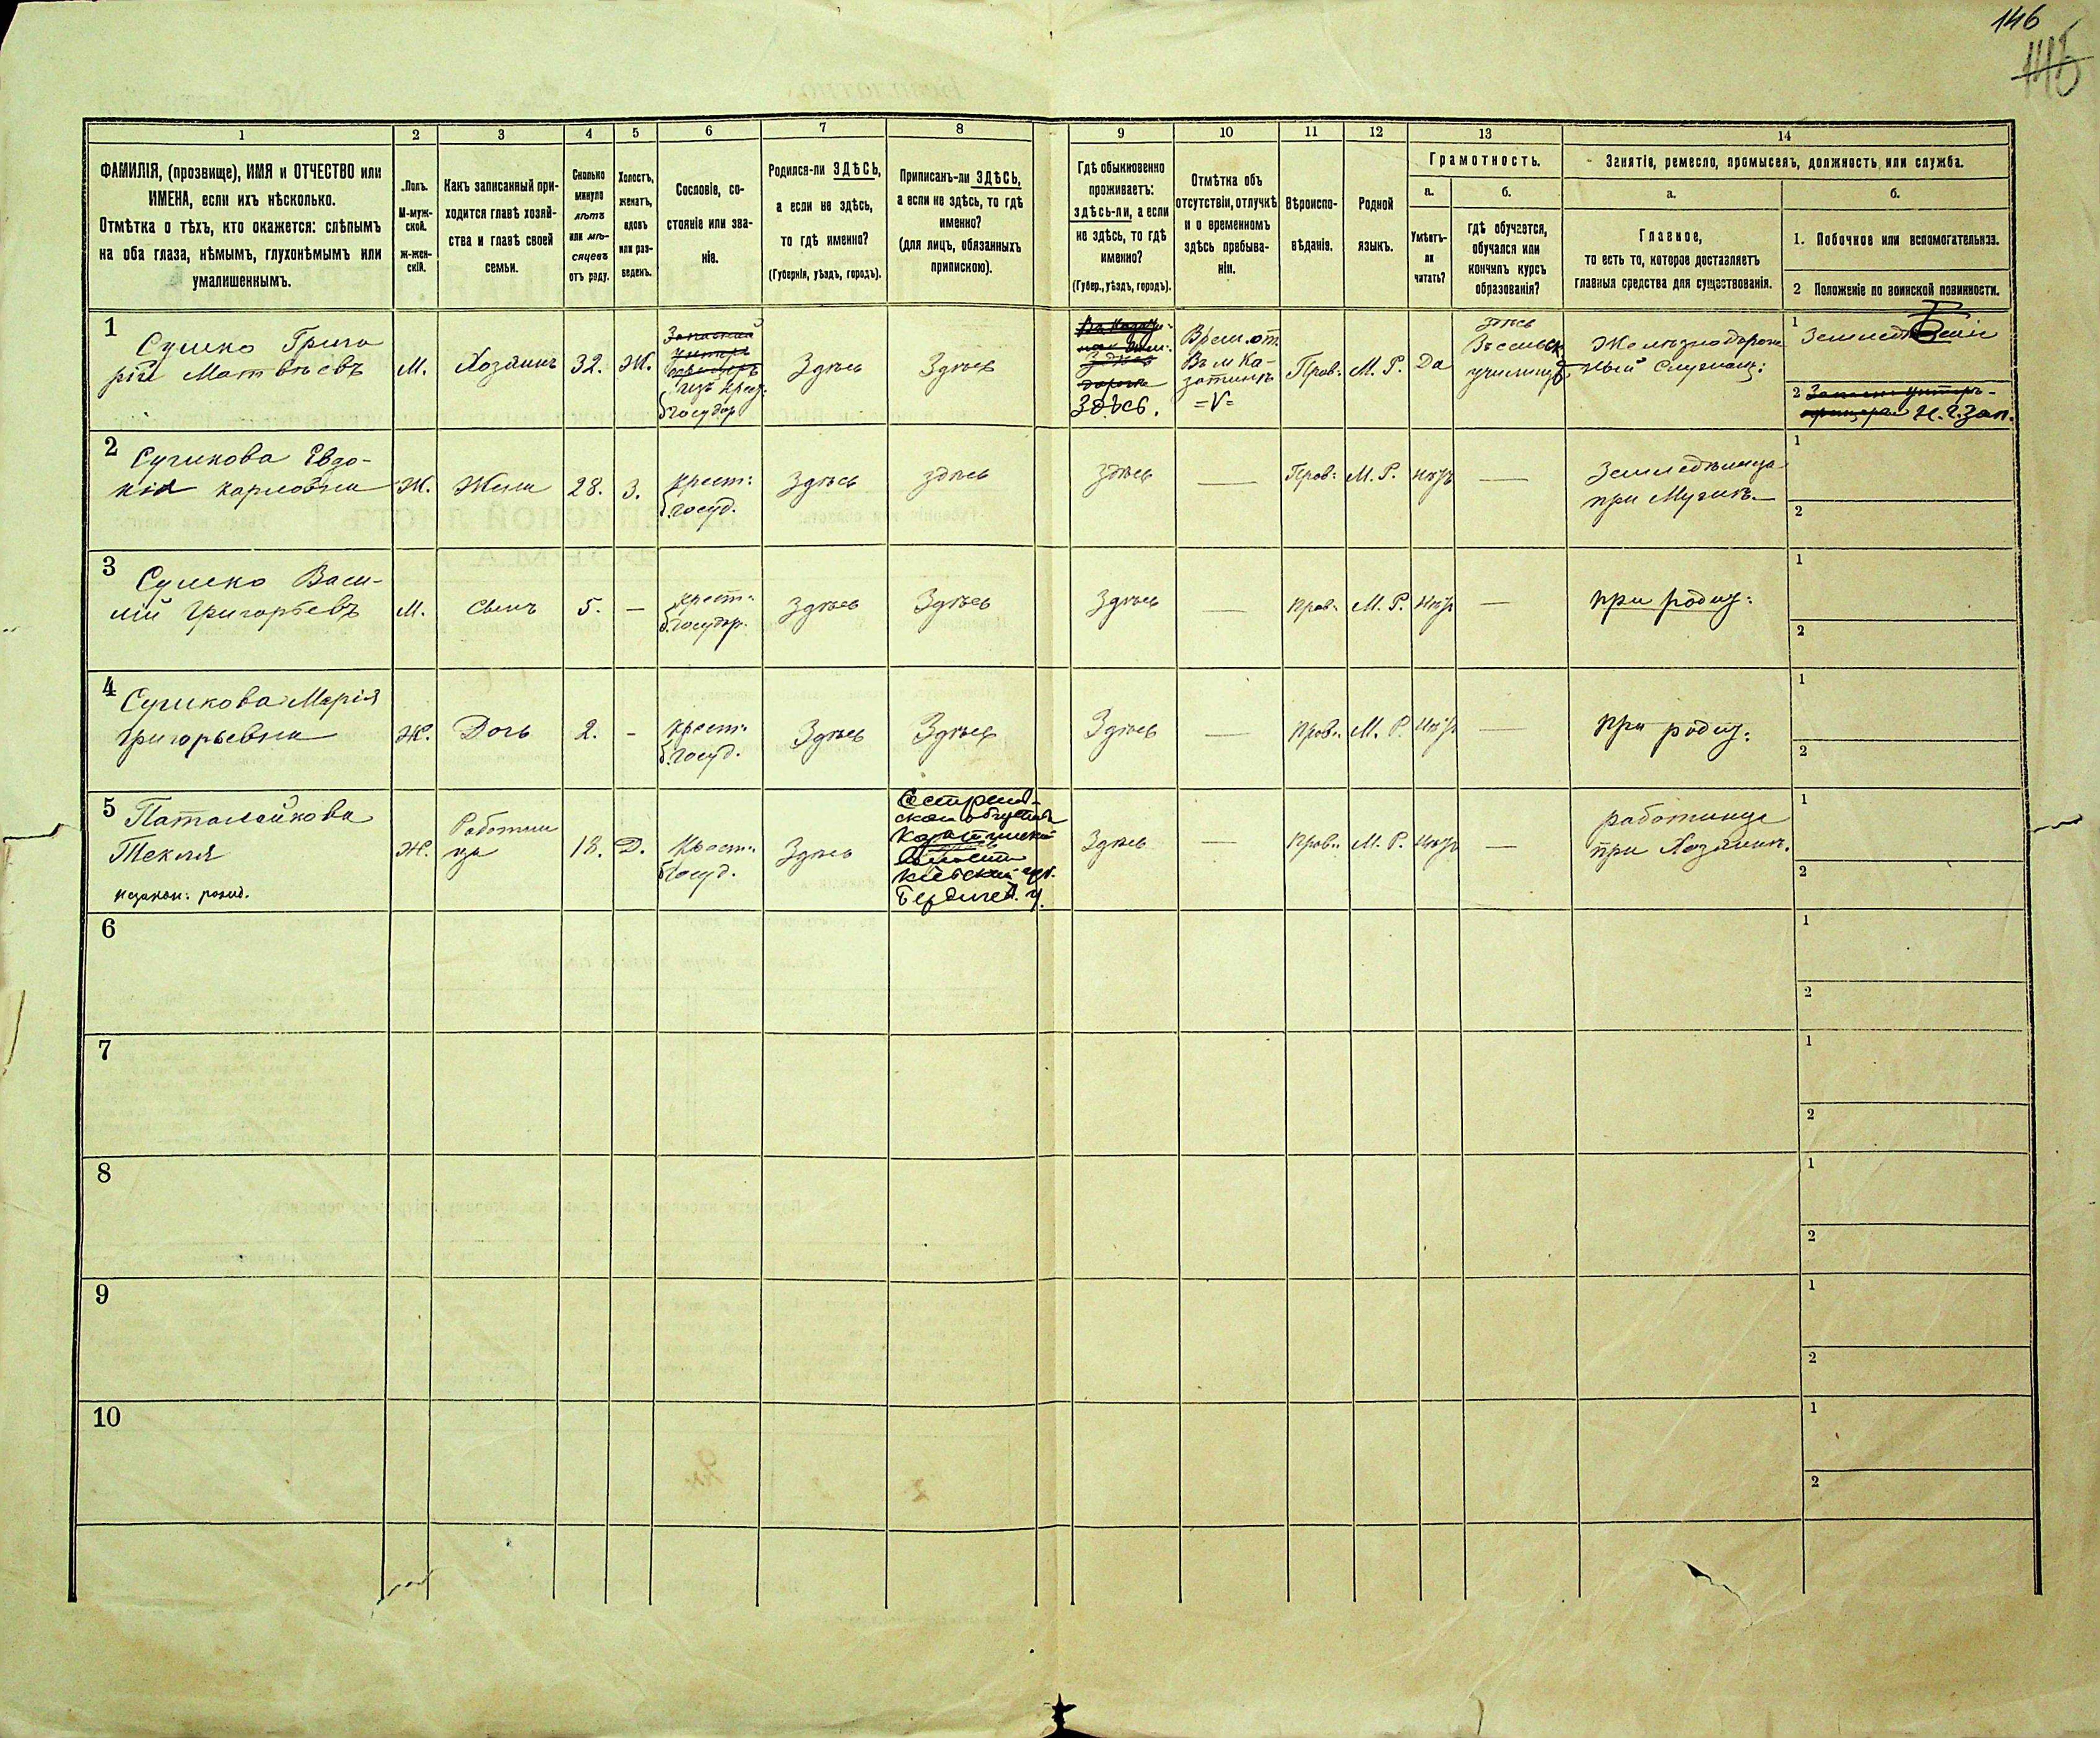 146
145
1
2
3
4
5
6
7
8
9
10
11
12
13
14
ФАМИЛІЯ, (прозвище), ИМЯ и ОТЧЕСТВО или
ИМЕНА, если ихъ нѣсколько.
Отмѣтка о тѣхъ, кто окажется: слѣпымъ
на оба глаза, нѣмымъ, глухонѣмымъ или
умалишеннымъ.
Полъ.
М-муж-
ской.
ж-жен-
скій.
Какъ записанный при-
ходится главѣ хозяй-
ства и главѣ своей
семьи.
Сколько
минуло
лѣтъ
или мѣ-
сяцевъ
отъ роду.
Холостъ,
женатъ,
вдовъ
или раз-
веденъ.
Сословіе, со-
стояніе или зва-
ніе.
Родился-ли ЗДѢСЬ,
а если не здѣсь,
то гдѣ именно?
(Губернія, уѣздъ, городъ).
Приписанъ-ли ЗДѢСЬ,
а если не здѣсь, то гдѣ
именно?
(для лицъ, обязанныхъ
припискою).
Гдѣ обыкновенно
проживаетъ:
здѣсь-ли, а если
не здѣсь, то гдѣ
именно?
(Губер., уѣздъ, городъ).
Отмѣтка объ
отсутствіи, отлучкѣ
и о временномъ
здѣсь пребыва-
ніи.
Вѣроиспо-
вѣданіе.
Родной
языкъ.
Грамотность.
а.
Умѣетъ-
ли
читать?
б.
гдѣ обучается,
обучался или
кончилъ курсъ
образованія?
Занятіе, ремесло, промыселъ, должность или служба.
а.
Главное,
то есть то, которое доставляетъ
главныя средства для существованія.
б.
1. Побочное или вспомогательное.
2 Положеніе по воинской повинности.
1
Сушко Григо
рій Матвѣевъ
М.
Хозяинъ
32.
Ж.
Запасный
унтеръ
офицеръ
изъ крест:
б. госудор
Здѣсь
Здѣсь
Здѣсь
дороги
Здѣсь.
Врем. от
Въ м Ка-
затинѣ
=V=
Прав:
М. Р.
Да
здѣсь
Въ сельск
училищѣ
Желѣзнодорож
ный Служащ:
1
Земледѣліе
2 Запасн унтеръ-
офицеръ Н. Ч. зап.
2
Сушкова Евдо-
кія Карловна
Ж.
Жена
28.
З.
крест:
б. госуд.
Здѣсь
здѣсь
здѣсь
—
Прав:
М. Р.
нѣтъ
—
при Мужѣ
1
2
3
Сушко Васи-
лій Григорьевъ
М.
Сынъ
5.
—
крест:
б. госудор.
Здѣсь
Здѣсь
Здѣсь
—
прав:
М. Р.
Нѣтъ
—
при родит:
1
2
4
Сушкова Марія
Григорьевна
Ж.
Дочь
2.
-
крест:
б. госуд.
Здѣсь
Здѣсь
Здѣсь
—
прав:
М. Р.
Нѣтъ
—
При родит:
1
2
5
Текля
незакон: рожд.
Ж.
Работни
ца
18.
Д.
Крест:
б. госуд.
Здѣсь
волости
Кіевской губ.
Бердичев. у.
Здѣсь
—
прав:
М. Р.
Нѣтъ
—
работница
при Хозяинѣ.
1
2
6
1
2
7
1
2
8
1
2
9
1
2
10
1
2